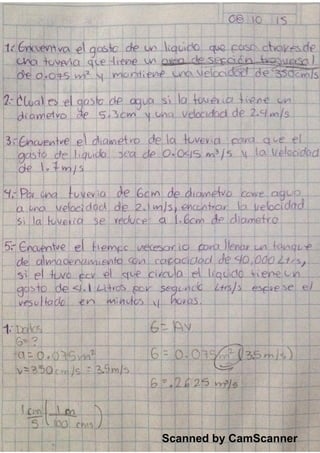 08 10 15
1.- Encuentra el gasto de un liquido que pasa através de
una tuveria que tiene un area de sección trasversal
de 0.075 m² y mantiene una velocidad de 350cm/s
2.- Cual es el gasto de agua si la tuveria tiene un
diametro de 5.3cm y una velocidad de 2.4m/s
3.- Encuentre el diametro de la tuveria para que el
gasto de liquido sea de 0.0415 m³/s y la velocidad
de 1.7m/s
4.- Por una tuveria de 6cm de diametro corre agua
a una velocidad de 2.1m/s, encontrar la velocidad
si la tuveria se reduce a 1.6cm de diametro
5.- Encuentre el tiempo necesario para llenar un tanque
de almacenamiento con capacidad de 40,000 Ltrs,
si el tuvo por el que circula el liquido tiene un
gasto de 4.1 Litros por segundo Ltrs/s exprese el
resultado en minutos y horas.
1. Datos G= AV
G=?
a=0.075m² G=0.075m² (3.5m/s)
v=350cm/s = 3.5m/s
G=.2625 m³/s
1cm/s (1m/100 cms)
Scanned by CamScanner